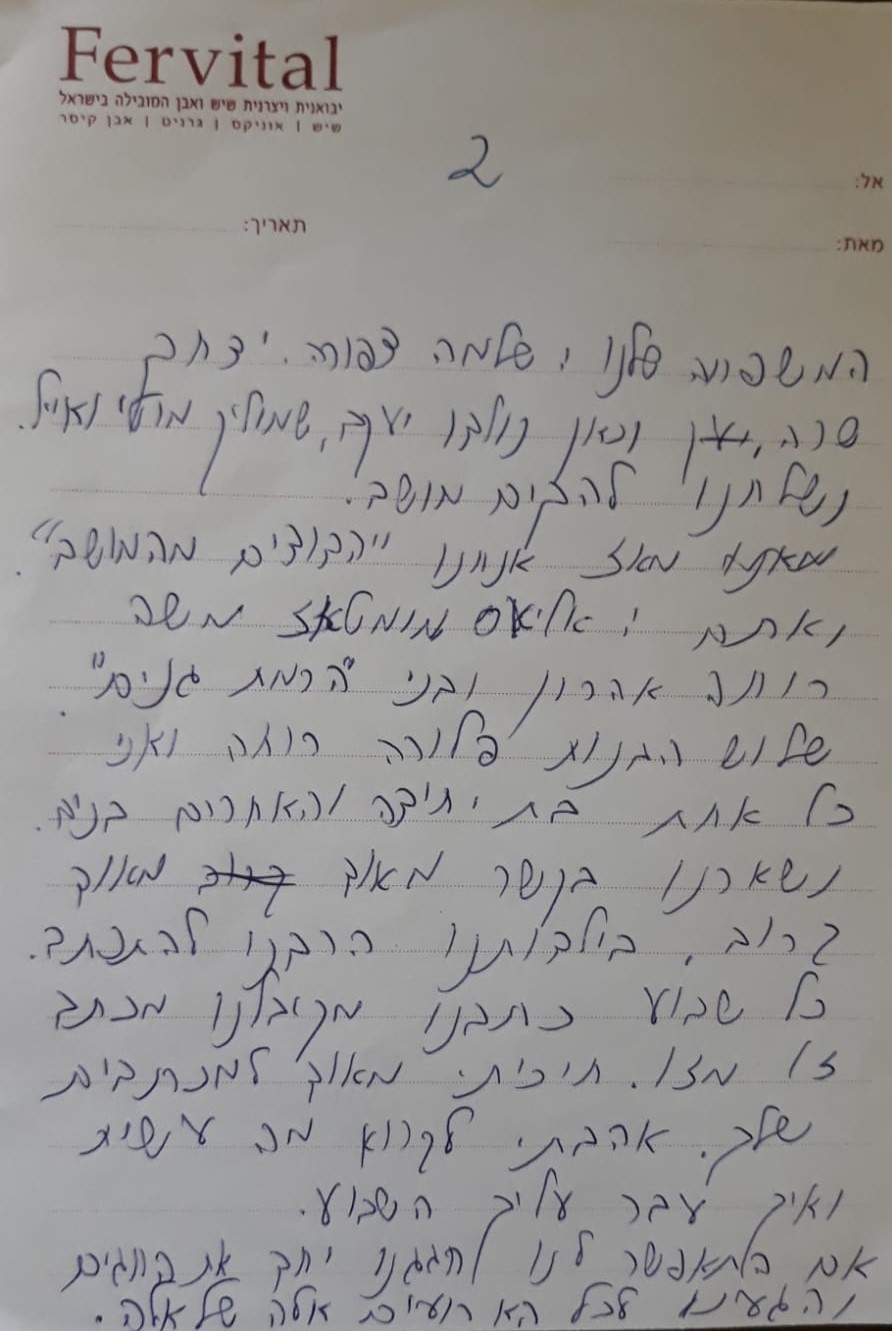 Fervital
יבואנית ויצרנית שיש ואבן המובילה בישראל
שיש | אוניקס | גרניט | אבן קיסר
2
אל:
תאריך:
מאת:
המשפחה שלנו, שלמה צפורה, יצחק
שרה, וכאן נולדו יעקב, שמוליק מוטי ואייל.
נשלחנו להקים מושב.
מאז אנחנו "הקוצים מהמושב".
ואתם, משה
רוחה אהרון ובני "הרמת גנים".
שלוש הבנות פלורה רוחה ואני
כל אחת בת יחידה והאחרים בנים.
נשארנו בקשר מאוד מאוד
קרוב, בילדותנו הרבנו להתכתב.
כל שבוע כתבנו וקיבלנו מכתב
זו מזו. חיכיתי מאוד למכתבים
שלך. אהבתי לקרוא מה עשית
ואיך עבר עליך השבוע.
אם התאפשר לנו חגגנו יחד את החגים
והגענו לכל הארועים אלה של אלה.